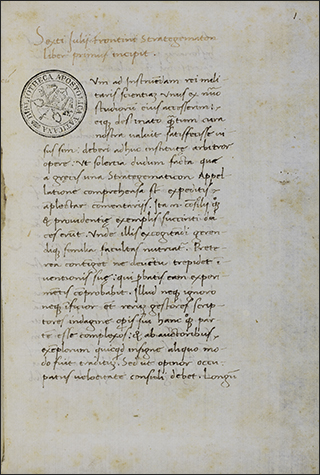 1
Sexti Julij Frontini Strategematon
liber primus incipit.
BIBLIOTHECA APOSTOLICA VATICANA
Vm ad Instruendam rei mili
taris scientiam Vnus ex nũo
studiosorũ eius accesserim:
eiq; destinato q̃tum cura
nostra valuit satisfecisse vi
sus sim: deberi adhuc institutę arbitror
operę: Vt solertia ducum facta que
a grecis una Strategematicon Appel
latione comprehensa st̃ expeditis
aplectar comentariis. Ita .n. cosilij q̃q
& providentię exemplis succincti du
ces erunt. Vnde illis excogitandi geren
diq; similia facultas nutriat̃. Prete
rea continget ne de euẽtu trepidet
inuentionis suę: qui ꝓbatis eam exper
imentis coprobabit. Illud neq; ignoro
neq; ificior et rerũ gestarũ scrip
tores indagine opis sui hanc q̃q par
tẽ esse complexos: & ab auctoribus
exeplorum quicqd insigne aliquo mo
do fuit traditũ. Sed ut opinor occu
patis velocitate consuli debet. Longũ